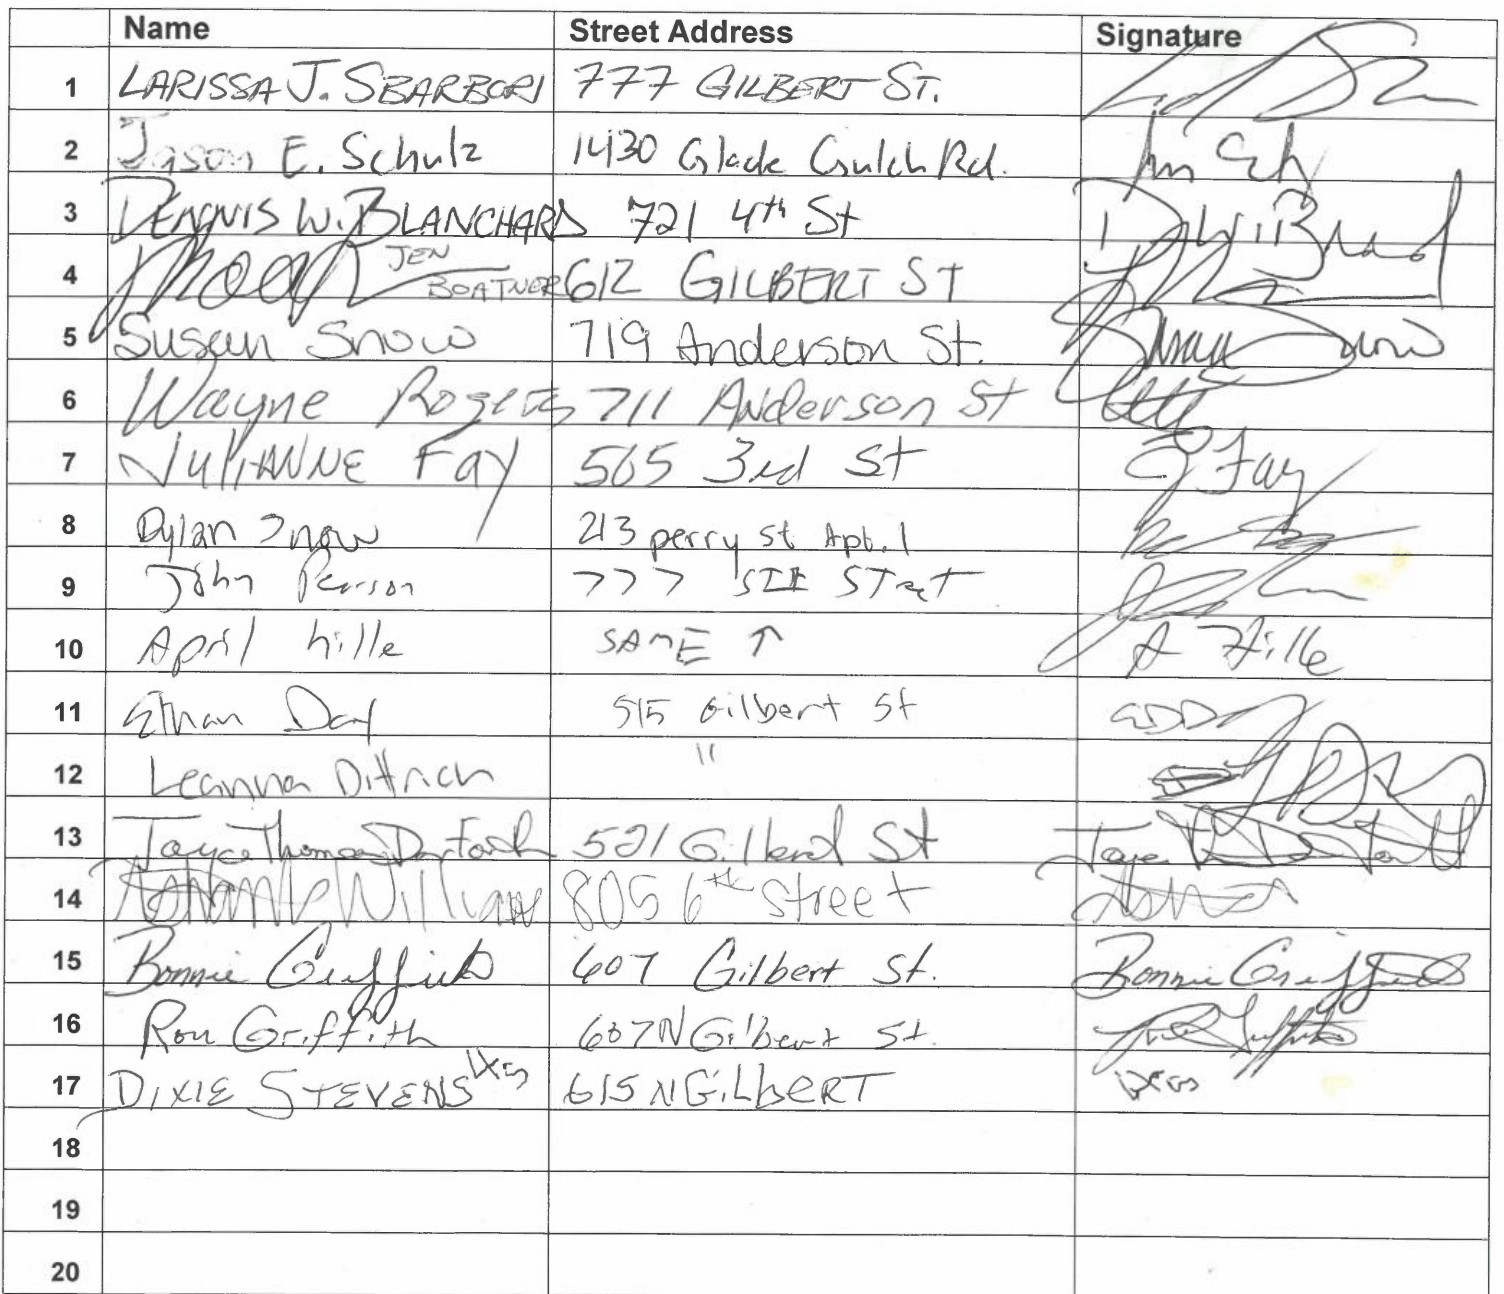 Name Street Address Signature
1 LARISSA J. SBARBORI 777 GILBERT ST.
2 Jason E. Schulz 1430 Glade Gulch Rd.
3 DENNIS W. BLANCHARD 721 4th St
4 JEN BOATNER 612 GILBERT ST
5 Susan Snow 719 Anderson St. Susan Snow
6 Wayne Rogers 711 Anderson St
7 JULIANNE Fay 565 3rd St J Fay
8 Dylan Snow 213 perry st Apt. 1
9 John Pearson 777 Street
10 April hille SAME ↑ A Hille
11 Ethan Day 515 Gilbert St
12 Leanna Dittrich "
13 Joyce Thomas 521 Gilbert St Joyce
14 William 805 6th Street
15 Bonnie Griffith 607 Gilbert St. Bonnie Griffith
16 Ron Griffith 607 N Gilbert St.
17 DIXIE STEVENS 615 N GILbERT
18
19
20